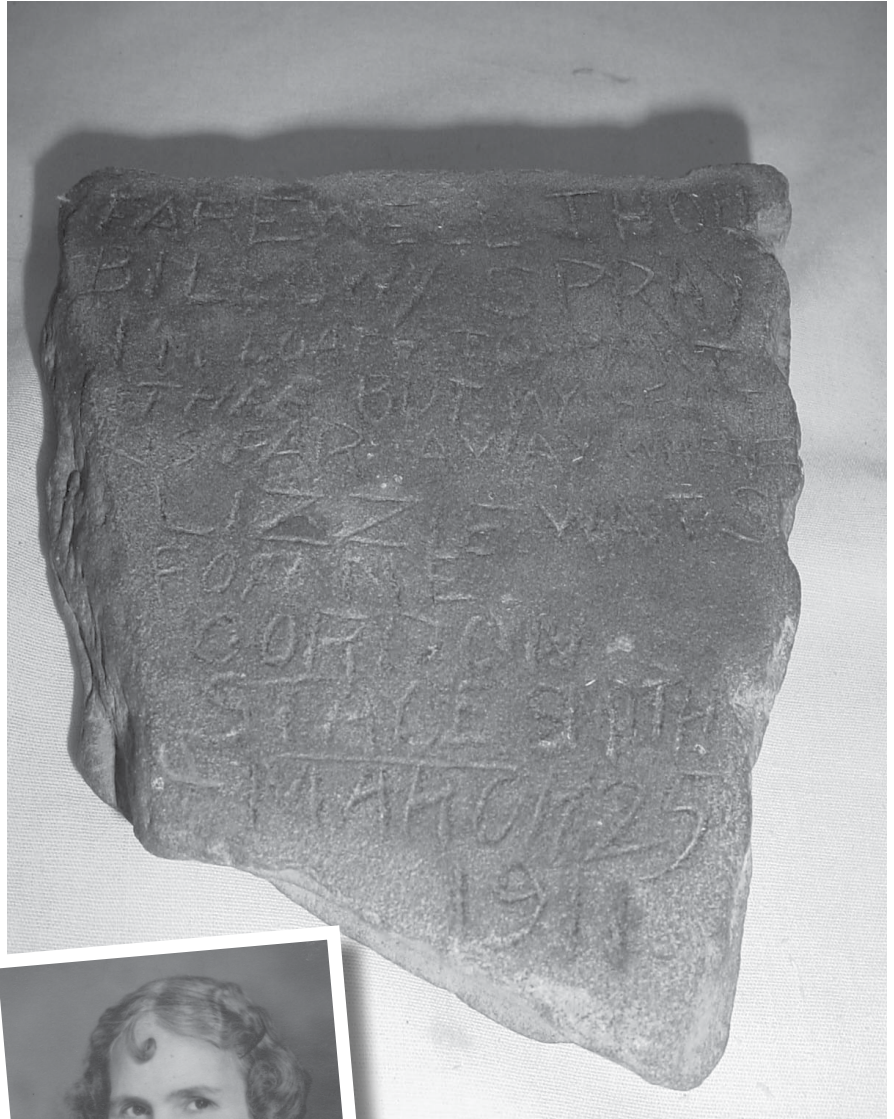 FAREWELL THOU
BILLOWY SPRAY
I'M LOATH TO
THEE BUT MY HEART
IS FAR AWAY WHERE
LIZZIE WAITS
FOR ME
GORDON
STACE SMITH
MARCH 25
1911